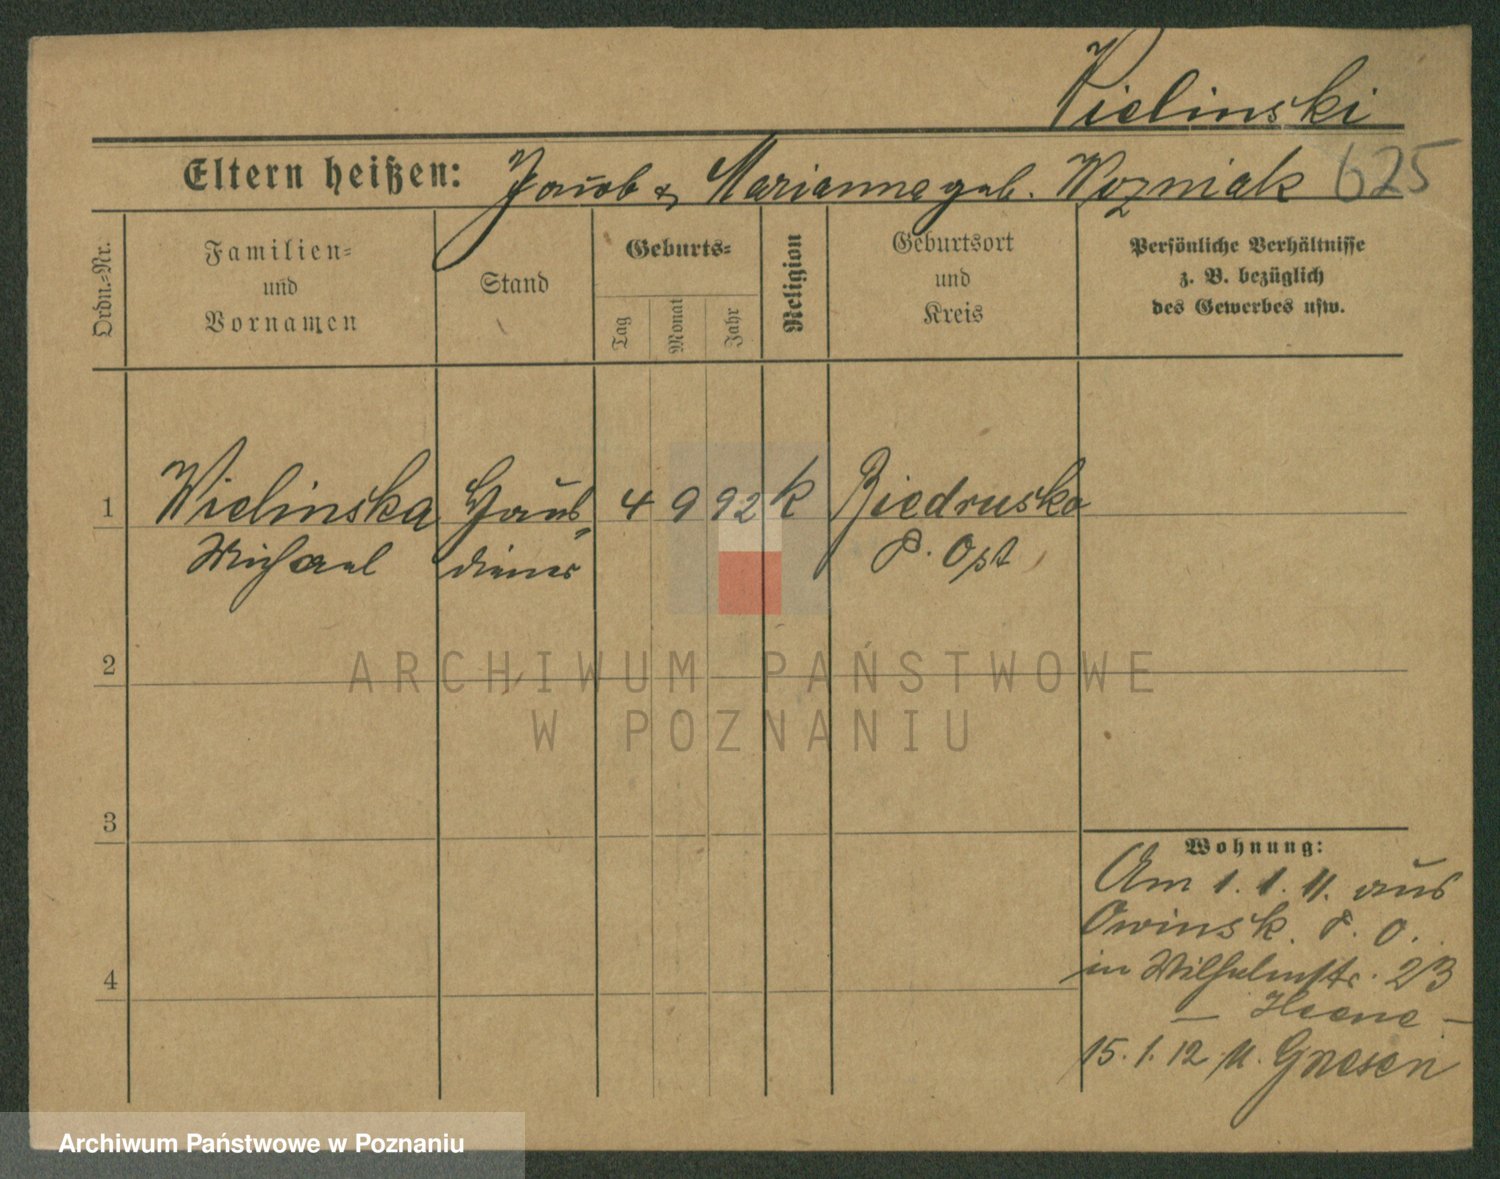 Wielinski
Eltern heißen: Jacob & Marianna geb. Wozniak 625
Ordn.-Nr.
Familien-
und
Vornamen
Stand
Geburts-
Tag
Monat
Jahr
Religion
Geburtsort
und
Kreis
Persönliche Verhältnisse
z. B. bezüglich
des Gewerbes usw.
1 Wielinska Haus- 4 9 92 k Biedrusko
Michael diener P. Ost
2
3
4
Wohnung:
Am 1. 1. 11. aus
Owinsk. P. O.
in Wilhelmstr. 23
15. 1. 12 n. Gnesen
ARCHIWUM PAŃSTWOWE
W POZNANIU
Archiwum Państwowe w Poznaniu